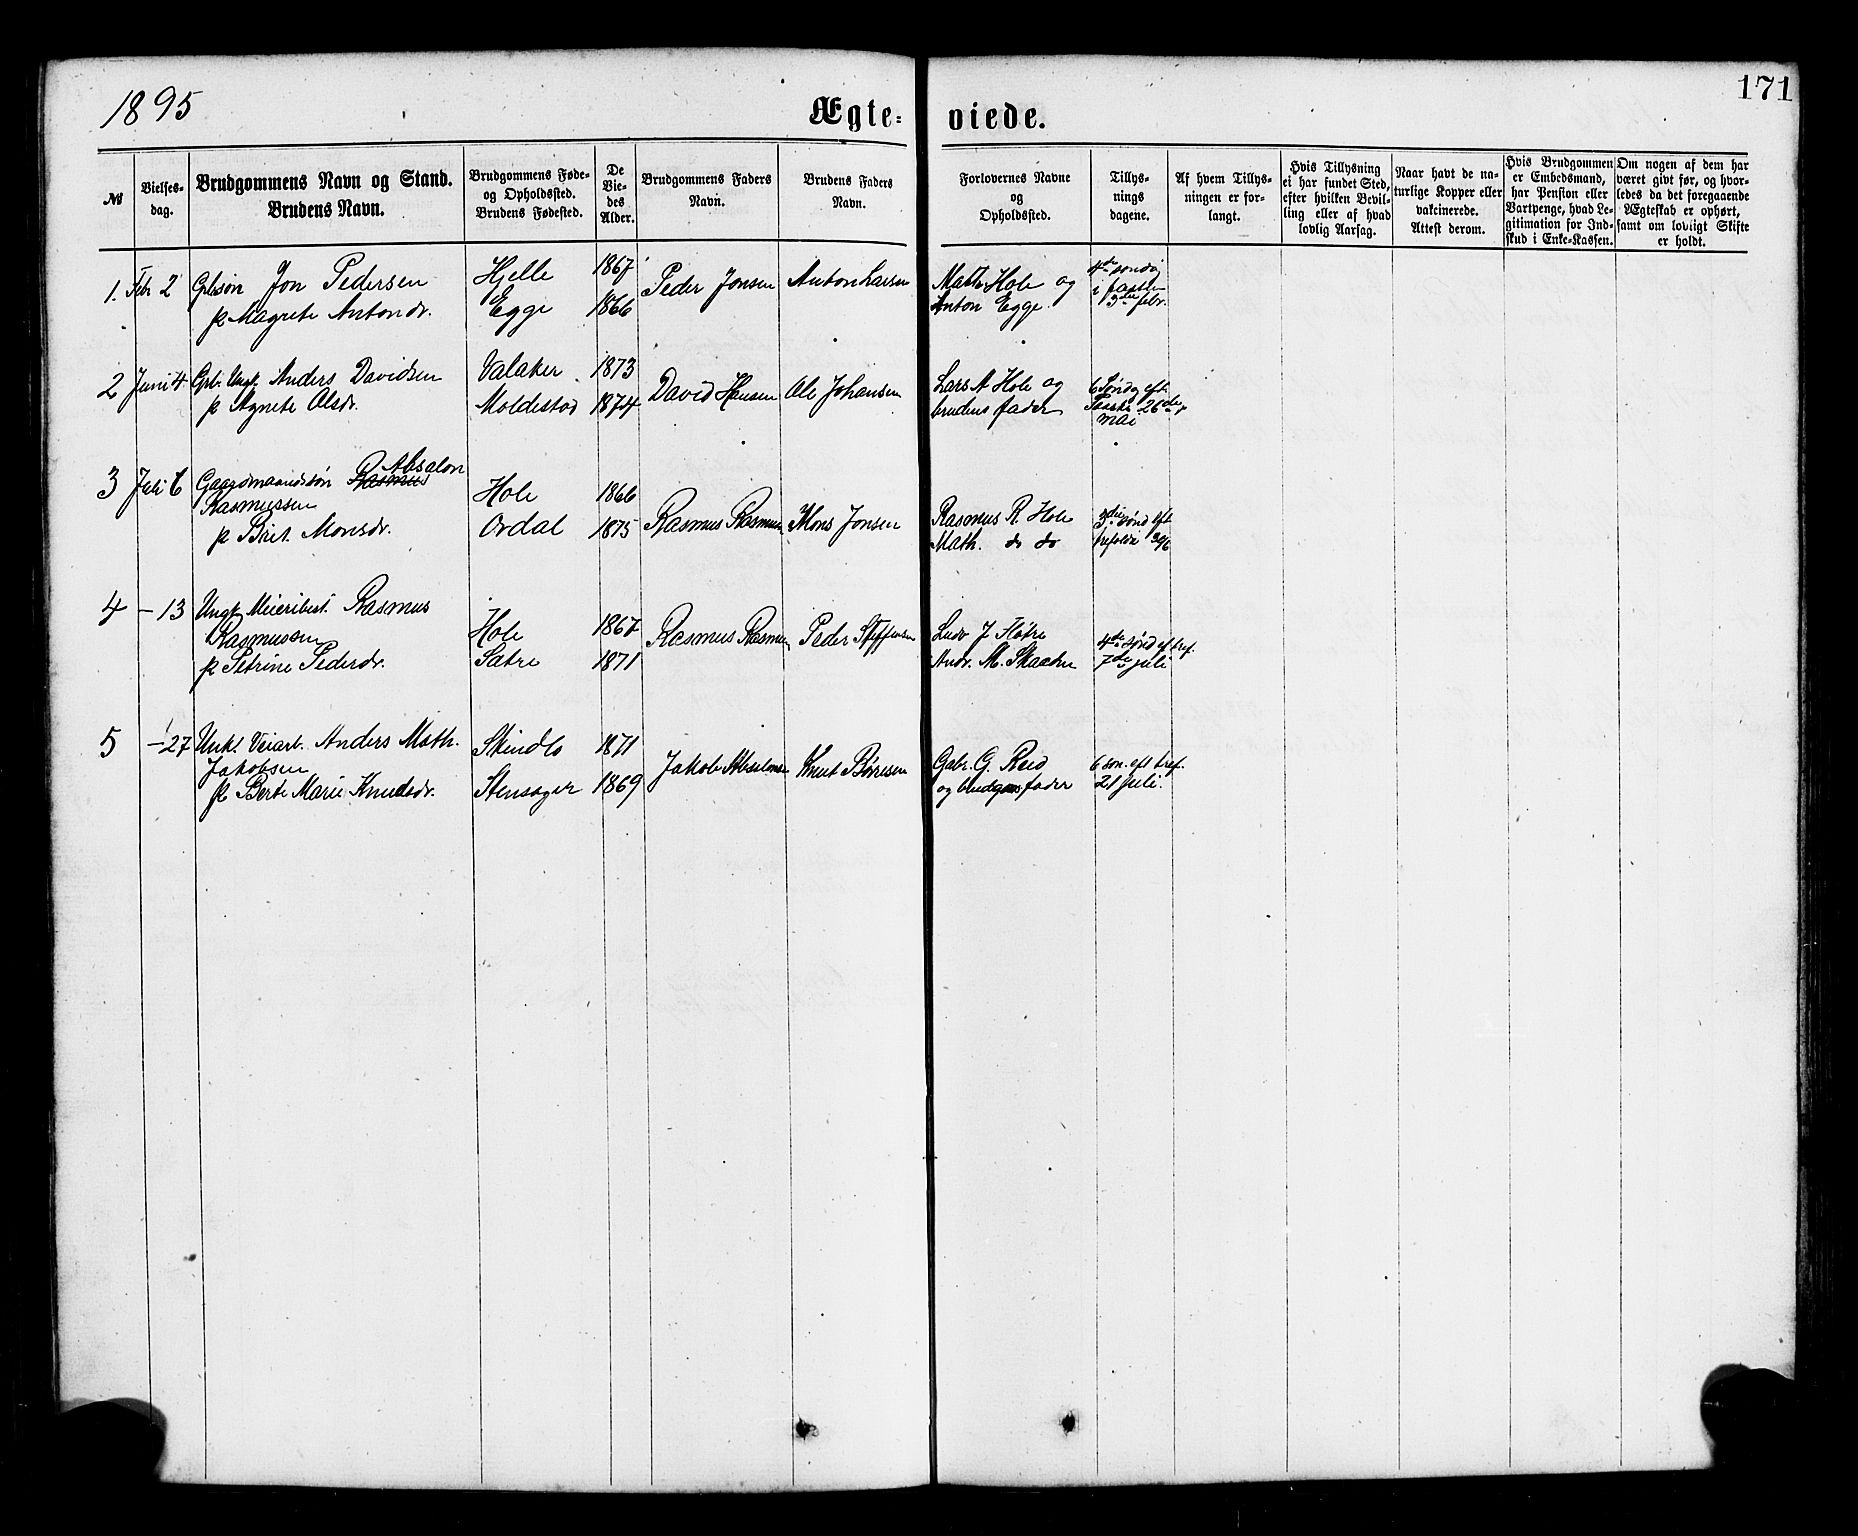 1895
Ægte- viede.
171
№
Vielses-
dag.
Brudgommens Navn og Stand.
Brudens Navn.
Brudgommens Føde-
og Opholdssted.
Brudens Fødested.
De
Vie-
des
Alder.
Brudgommens Faders
Navn.
Brudens Faders
Navn.
Forlovernes Navne
og
Opholdssted.
Tillys-
nings
dagene.
Af hvem Tillys-
ningen er for-
langt.
Hvis Tillysning
ei har fundet Sted,
efter hvilken Bevil-
ling eller af hvad
lovlig Aarsag.
Naar havt de na-
turlige Kopper eller
vakcinerede.
Attest derom.
Hvis Brudgommen
er Embedsmand,
har Pension eller
Vartpenge, hvad Le-
gitimation for Ind-
skud i Enke-Kassen.
Om nogen af dem har
været givt før, og hvor-
ledes da det foregaaende
Ægteskab er ophørt,
samt om lovligt Skifte
er holdt.
1. Febr 2 Gbrsøn Jon Pedersen
p Magrete Antondr.
Hjelle
Egge
1867
1866
Peder Jonsen
Anton Larsen
Math Hole og
Anton Egge.
4de søndag
i faste
3die febr.
2 Juni 4 Grb. Ungk. Anders Davidsen
p Agnete Olsdr.
Valaker
Moldestad
1873
1874
David Hansen
Ole Johansen
Lars A Hole og
brudens fader
6 Søndag eft.
Paaske 26de
mai
3 Juli 6 Gaardmaandssøn Rasmus Absalon
Rasmussen
p Birit. Monsdr.
Hole
Ordal
1866
1875
Rasmus Rasmusen
Mons Jonsen
Rasmus R. Hole
Math. do do
3die sønd eft
trefoldh 30/6
4 - 13 Ungk Meieribest. Rasmus
Rasmussen
p Petrine Pedersdr.
Hole
Sætre
1867
1871
Rasmus Rasmusen
Peder Steffensen
Ludv J Fløtre
Andr. M. Skaaden
4de sønd ef tref.
7de juli
5 - 27 Unk. Veiarb. Anders Math.
Jakobsen
p Berte Marie Knudsdr.
Skindlo
Stensager
1871
1869
Jakob Absalonsen
Knut Børresen
Gabr. G. Reed
og brudgoms fader
6 søn. eft tref.
21 Juli.